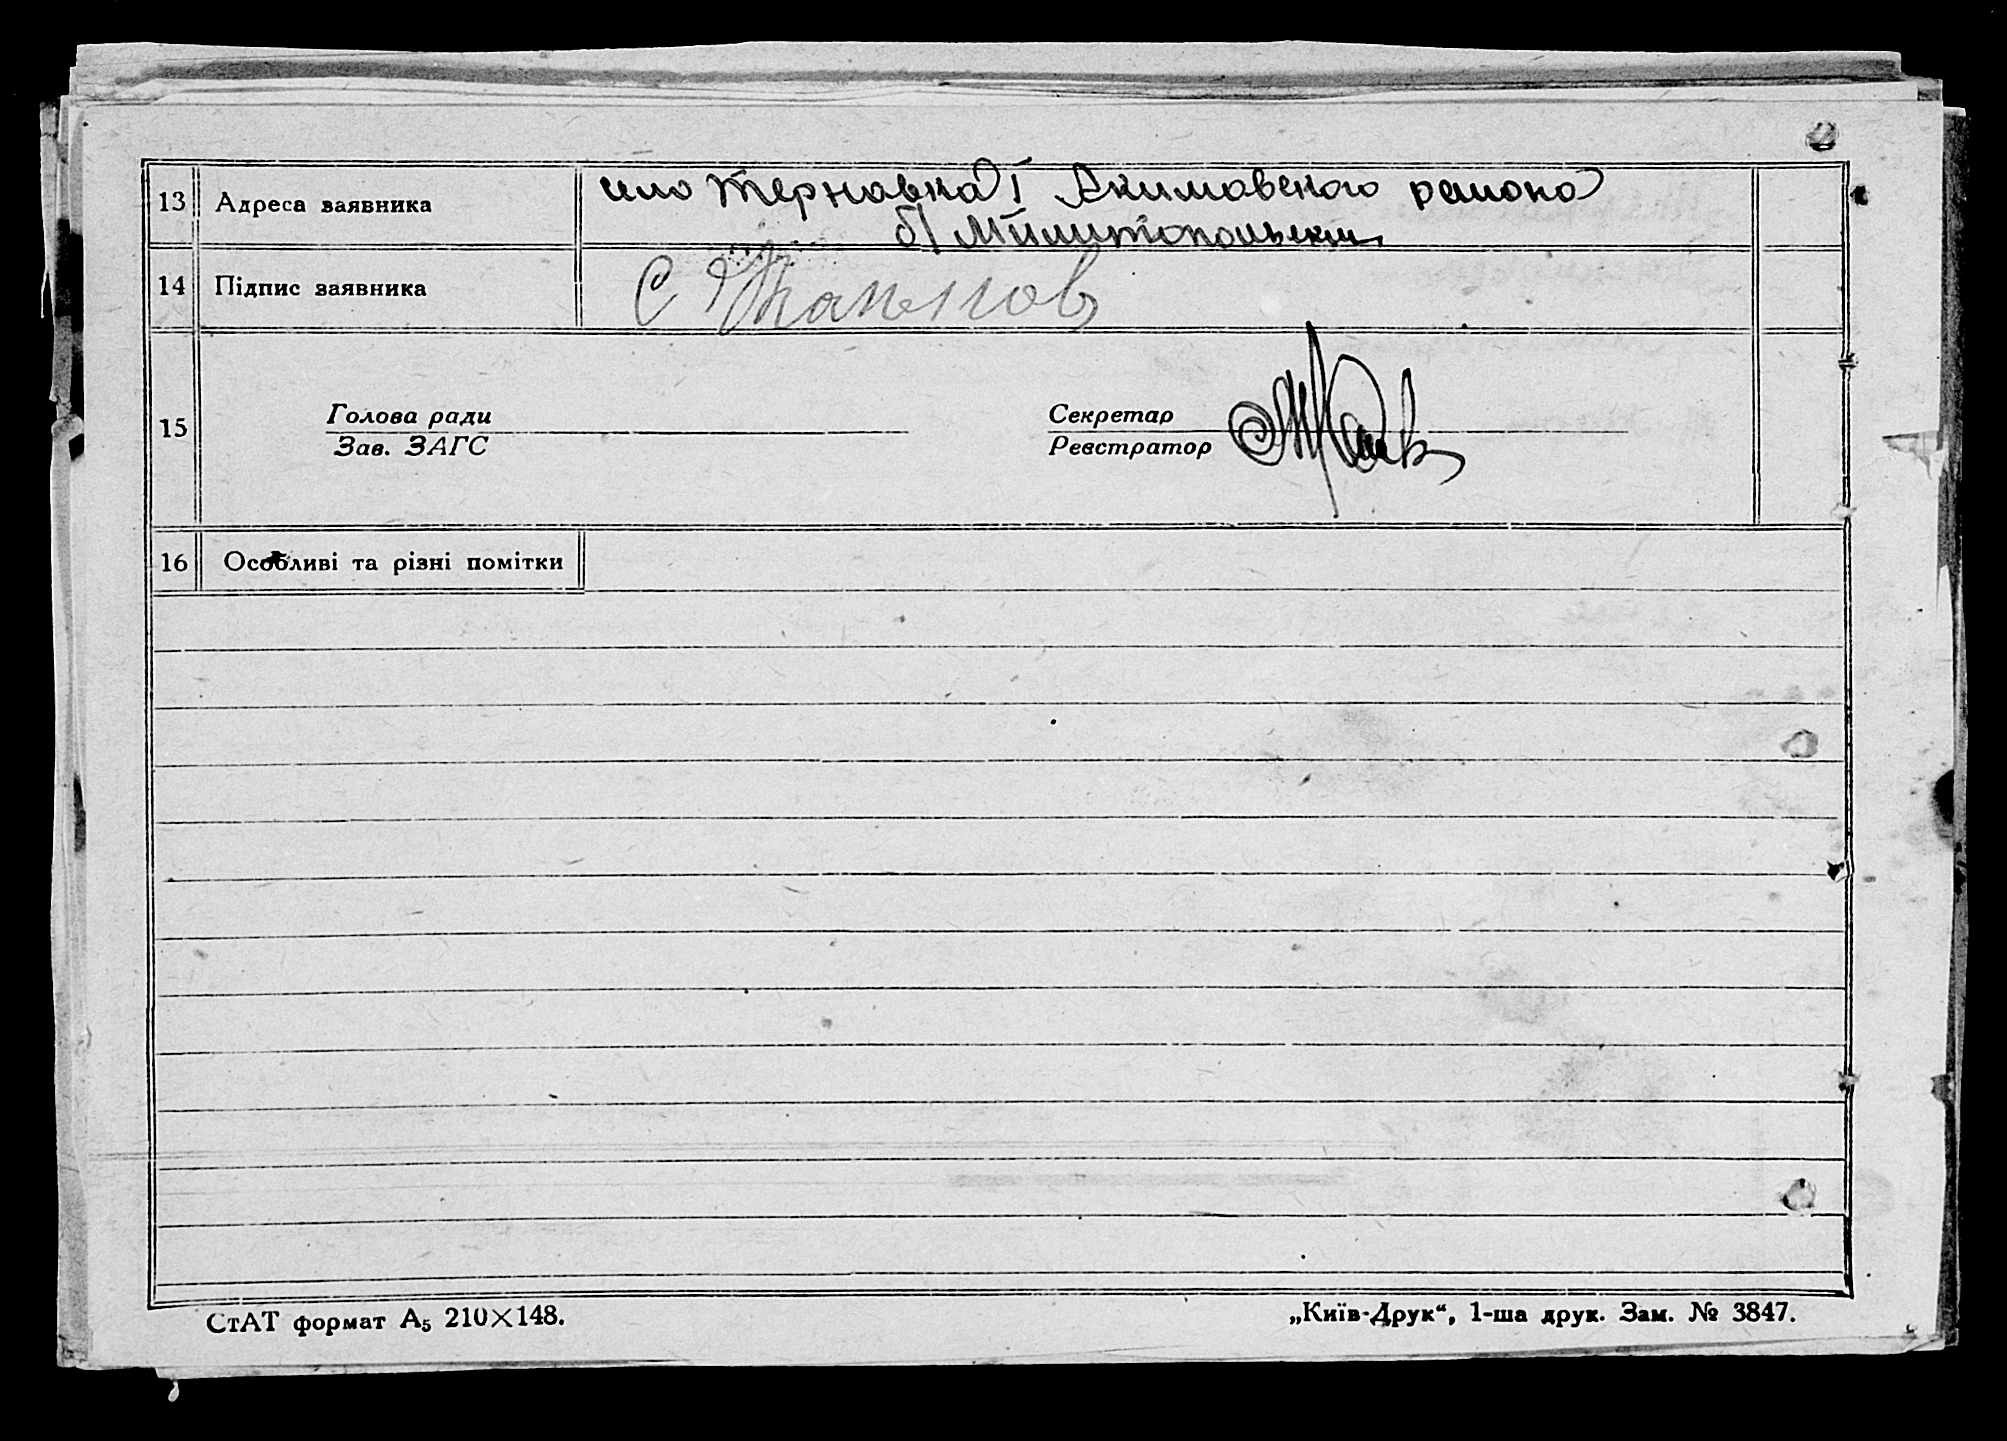 13 Адреса заявника село Терновка I Акимовского района
б/ Мелитопольский
14 Підпис заявника С
15 Голова ради Секретар
Зав. ЗАГС Реєстратор
16 Особливі та різні помітки
СтАТ формат А₅ 210×148. „Київ-Друк“, 1-ша друк. Зам. № 3847.